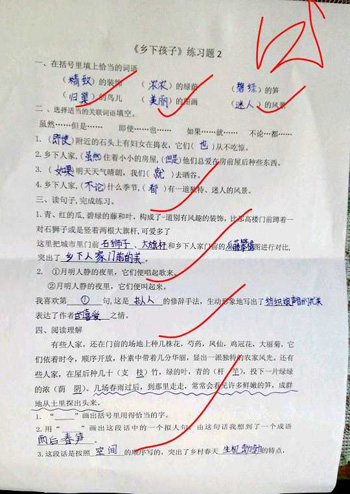 《乡下孩子》练习题2
一、在括号里填上恰当的词语
（精致）的装饰 （浓浓）的绿荫 （碧绿）的笋
（归巢）的鸟儿 （美丽）的图画 （迷人）的风景
二、选择适当的关联词语填空。
虽然……但是…… 即使……也…… 如果……就…… 不论…都……
1.（即使）附近的石头上有妇女在捣衣，它们（也）从不吃惊。
2.乡下人家，（虽然）住着小小的房屋，（但是）他们总爱在房前屋后种些东西。
3.（如果）明天天气晴朗，我们（就）去晒谷。
4.乡下人家，（不论）什么季节，（都）有一道独特、迷人的风景。
三、读句子，完成练习。
1.青、红的瓜，碧绿的藤和叶，构成了一道别有风趣的装饰，比那高楼门前蹲着一
对石狮子或是竖着两根大旗杆，可爱多了
这里把城市里门前石狮子、大旗杆和乡下人家门前的 图进行对比，
突出了乡下人家门前的美。
2. ①月明人静的夜里，它们便唱起歌来。
②月明人静的夜里，它们便叫起来。
我喜欢第①句，这是拟人的修辞手法，生动形象地写出了纺织娘声音的优美
表达了作者喜爱之情。
四、阅读理解
有些人家，还在门前的场地上种几株花，芍药，凤仙，鸡冠花，大丽菊，它
们依着时令，顺序开放，朴素中带着几分华丽，显出一派独特的农家风光。还有
些人家，在屋后种几十（支 枝）竹，绿的叶，青的（杆 竿），投下一片绿绿
的浓（荫 阴）。几场春雨过后，到那里走走，常常会看见许多鲜嫩的笋，成群
地从土里探出头来。
1. “ ”画出括号里用得恰当的字。
2. 用“ ”画出这段话中的一个拟人句，由这句话我想到了一个成语
雨后春笋
3.这段话是按照空间的顺序写的，突出了乡村春天生机勃勃的特点。